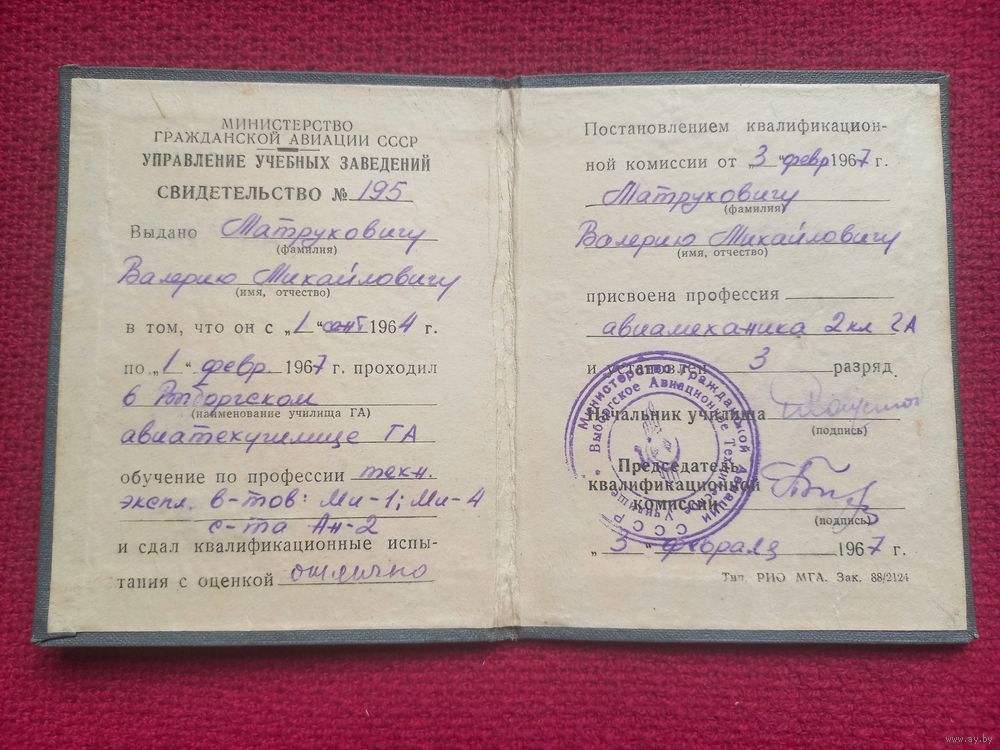 МИНИСТЕРСТВО
ГРАЖДАНСКОЙ АВИАЦИИ СССР
УПРАВЛЕНИЕ УЧЕБНЫХ ЗАВЕДЕНИЙ
СВИДЕТЕЛЬСТВО № 195
Выдано Матруковичу
(фамилия)
Валерию Михайловичу
(имя, отчество)
в том, что он с „1“ сент 1964 г.
по „1“ февр. 1967 г. проходил
в Выборгском
(наименование училища ГА)
авиатехучилище ГА
обучение по профессии техн.
экспл. в-тов: Ми-1; Ми-4
с-та Ан-2
и сдал квалификационные испы-
тания с оценкой отлично
Постановлением квалификацион-
ной комиссии от „3“ февр 1967 г.
Матруковичу
(фамилия)
Валерию Михайловичу
(имя, отчество)
присвоена профессия
авиамеханика 2кл ГА
и установлен 3 разряд
Начальник училища
(подпись)
Председатель
квалификационной
комиссии
(подпись)
„3“ февраля 1967 г.
Тип. РИО МГА. Зак. 88/2124
Министерство Гражданской Авиации СССР
Выборгское Авиационное Техническое Училище
www.ay.by